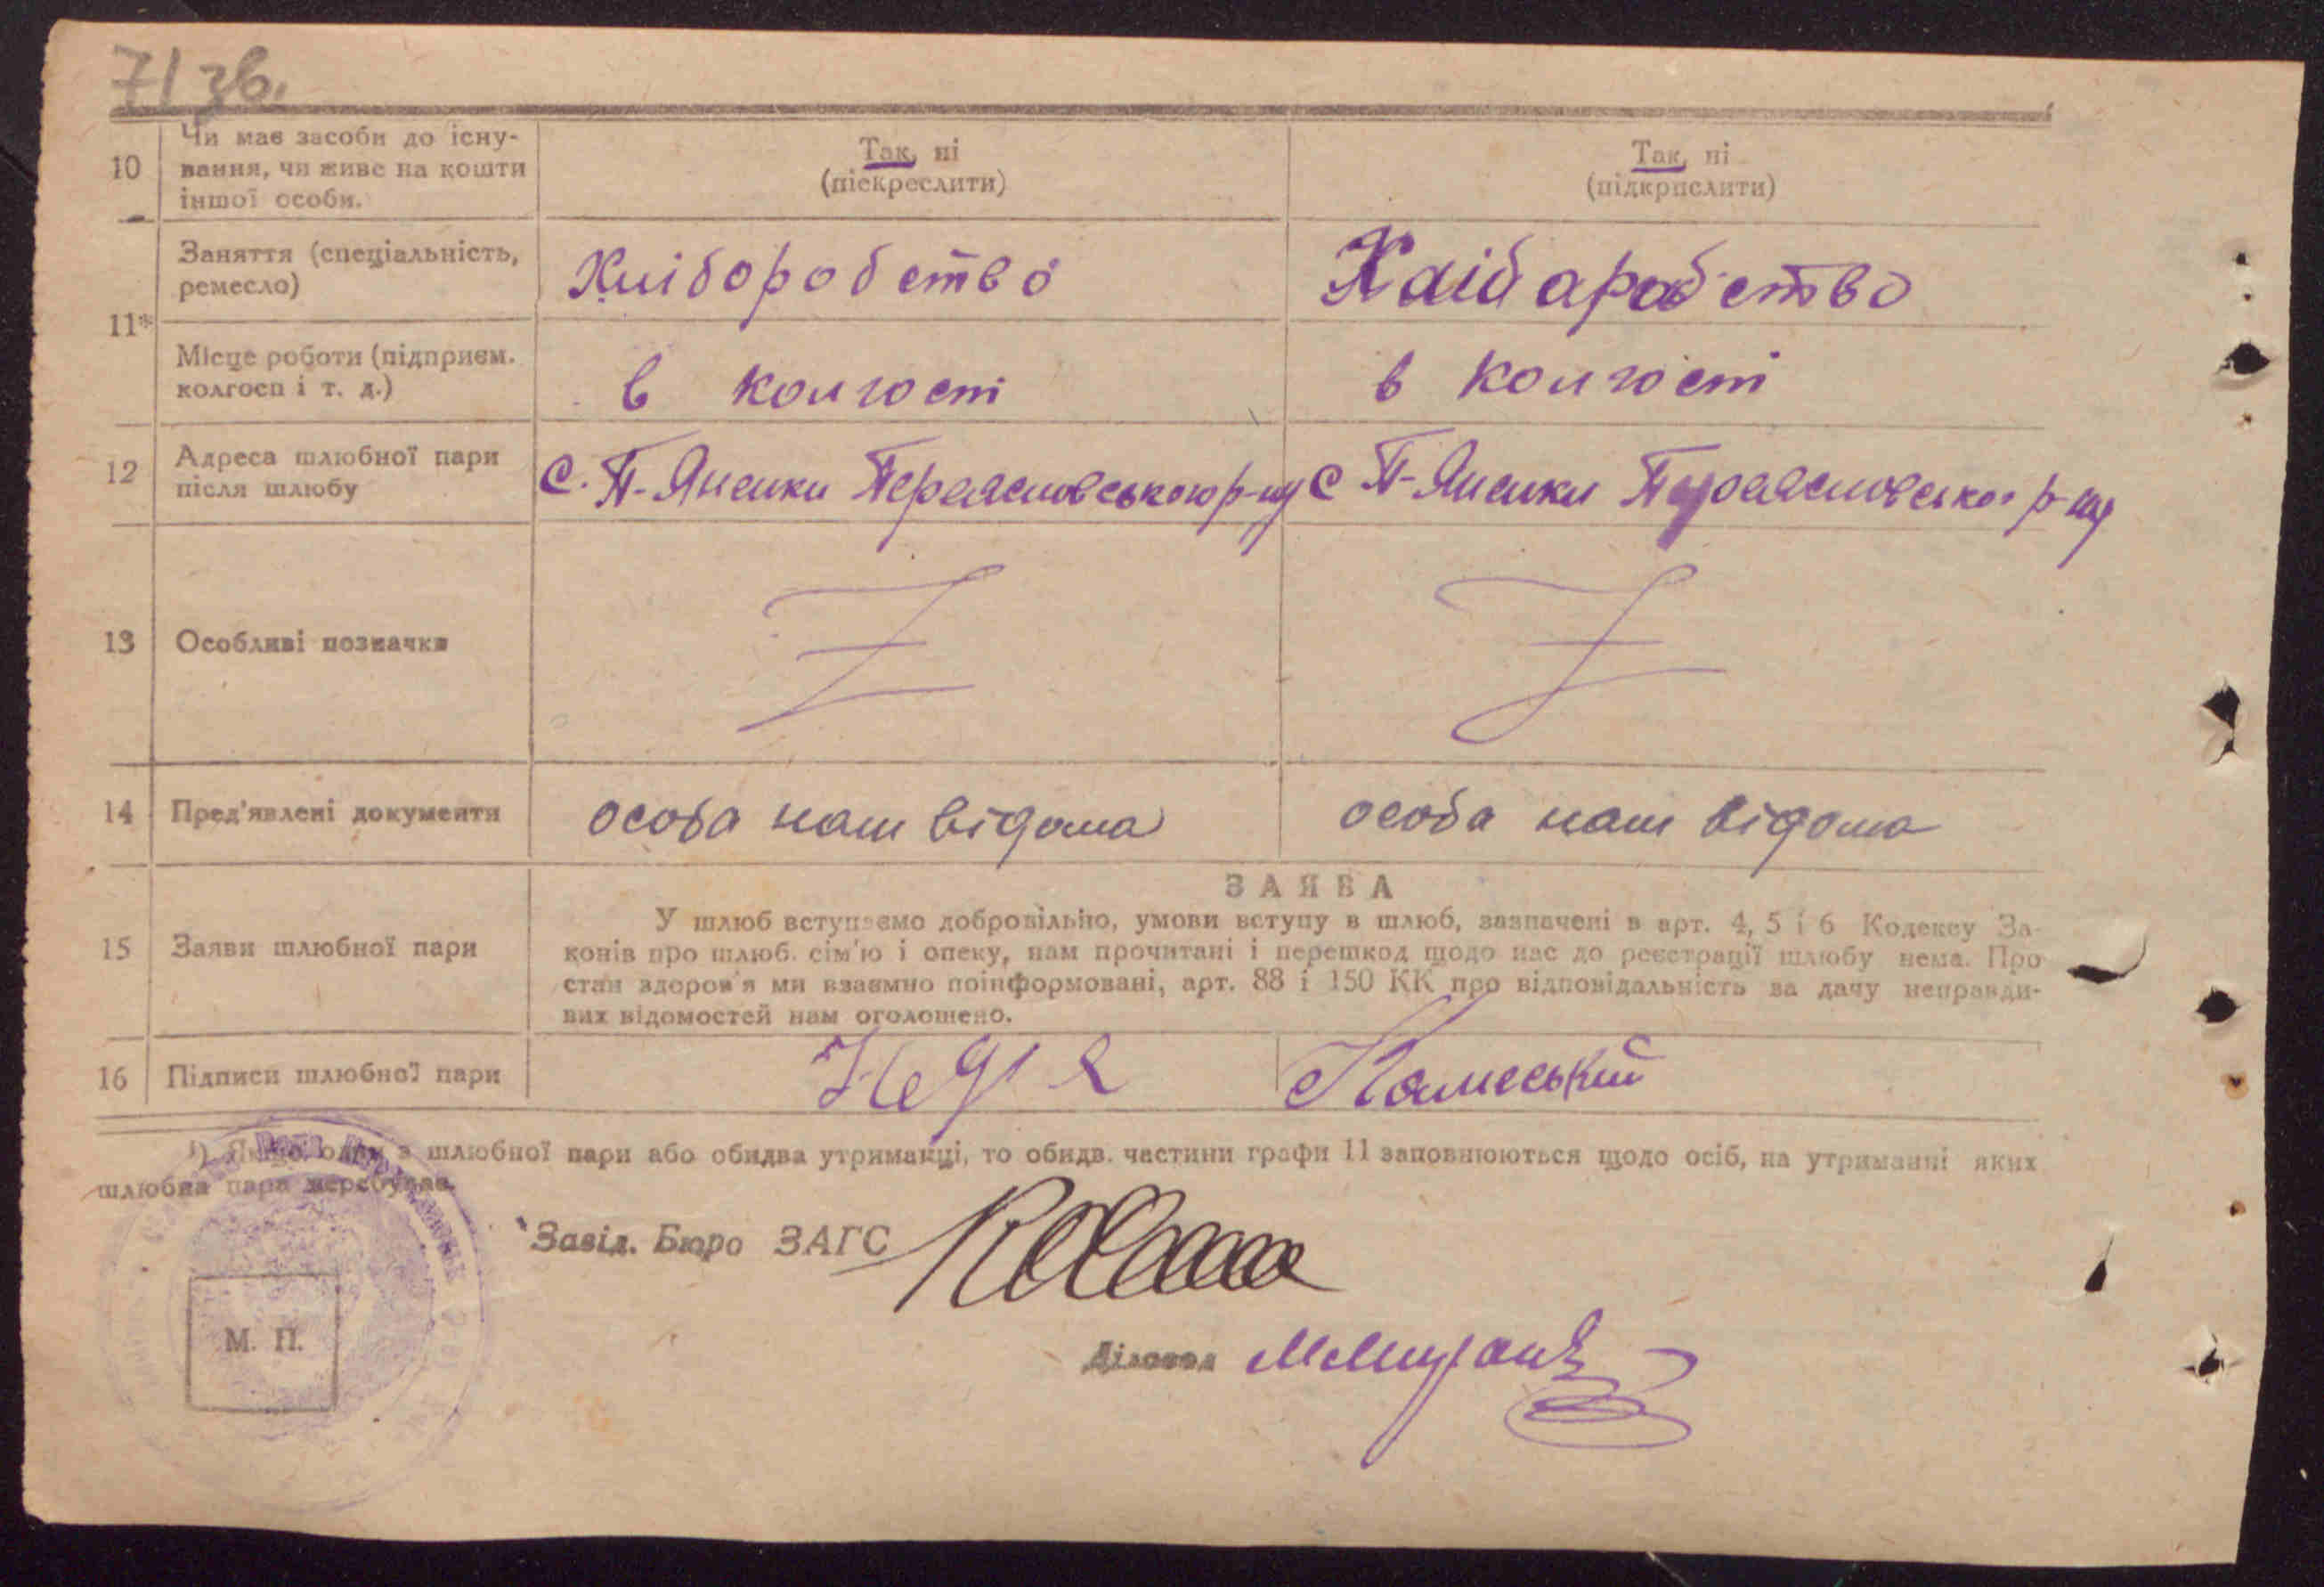 71 зв.
10
Чи має засоби до існу-
вання, чи живе на кошти
іншої особи.
Так, ні
(піскреслити)
Так, ні
(підкрислити)
11*
Заняття (спеціальність,
ремесло)
Хліборобство
Хлібаробство
Місце роботи (підприєм.
колгосп і т. д.)
в колгоспі
в колгоспі
12
Адреса шлюбної пари
після шлюбу
с. П-Яненки Переяславського р-ну
с П-Яненки Переяславског р-ну
13
Особливі позначки
14
Пред'явлені документи
особа нам відома
особа нам відома
15
Заяви шлюбної пари
ЗАЯВА
У шлюб вступаємо добровільно, умови вступу в шлюб, зазначені в арт. 4, 5 і 6 Кодексу За-
конів про шлюб. сім'ю і опеку, нам прочитані і перешкод щодо нас до реєстрації шлюбу нема. Про
стан здоров'я ми взаємно поінформовані, арт. 88 і 150 КК про відповідальність за дачу неправди-
вих відомостей нам оголошено.
16
Підписи шлюбної пари
¹) Якщо один з шлюбної пари або обидва утриманці, то обидв. частини графи 11 заповнюються щодо осіб, на утриманні яких
шлюбна пара перебуває.
Завід. Бюро ЗАГС
М. П.
Діловод